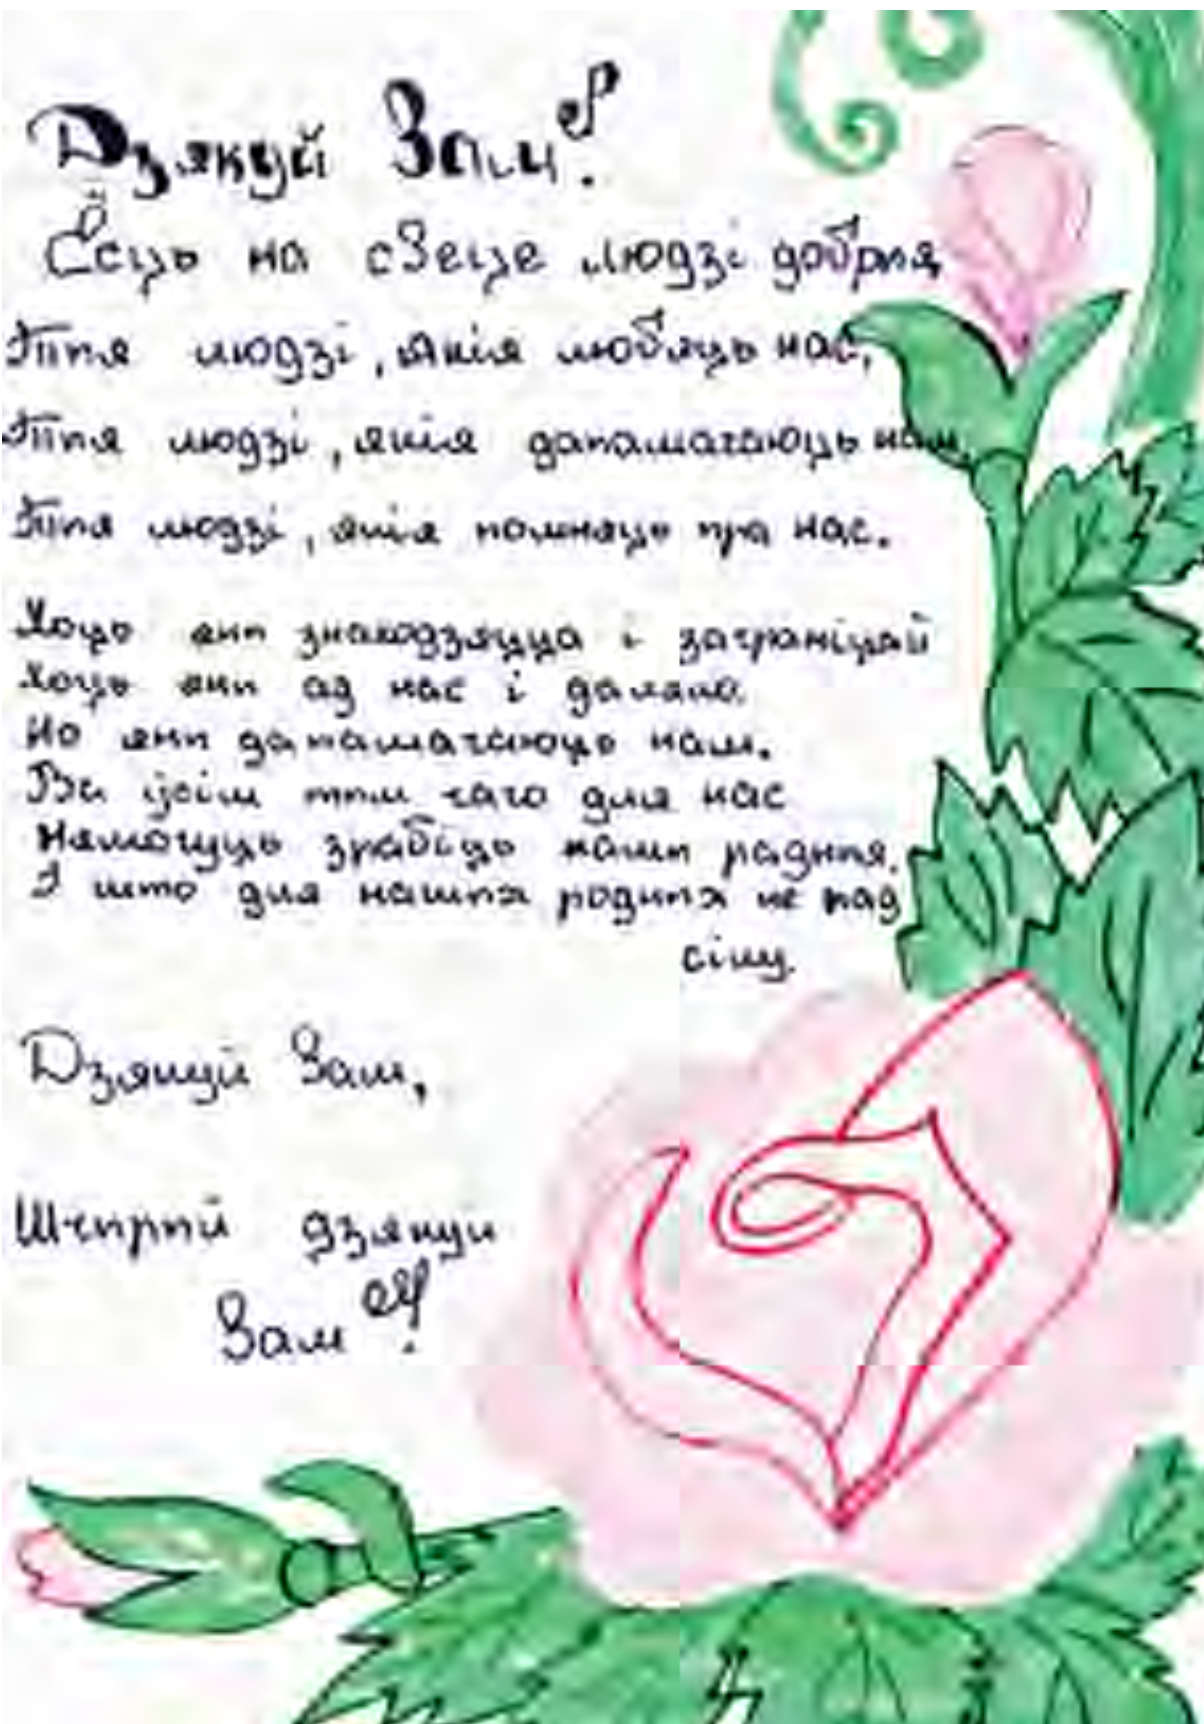 Дзякуй Вам!
Ёсць на свеце людзі добрыя
Тыя людзі, якія любяць нас,
Тыя людзі, якія дапамагаюць нам,
Тыя людзі, якія помняць пра нас.
Хоць яны знаходзяцца і заграніцай
Хоць яны ад нас і далёка.
Но яны дапамагаюць нам.
Ва ўсім тым чаго для нас
Немогуць зрабіць нашы радныя.
І што для нашых родных не пад
сілу.
Дзякуй Вам,
Шчырый дзякуй
Вам!